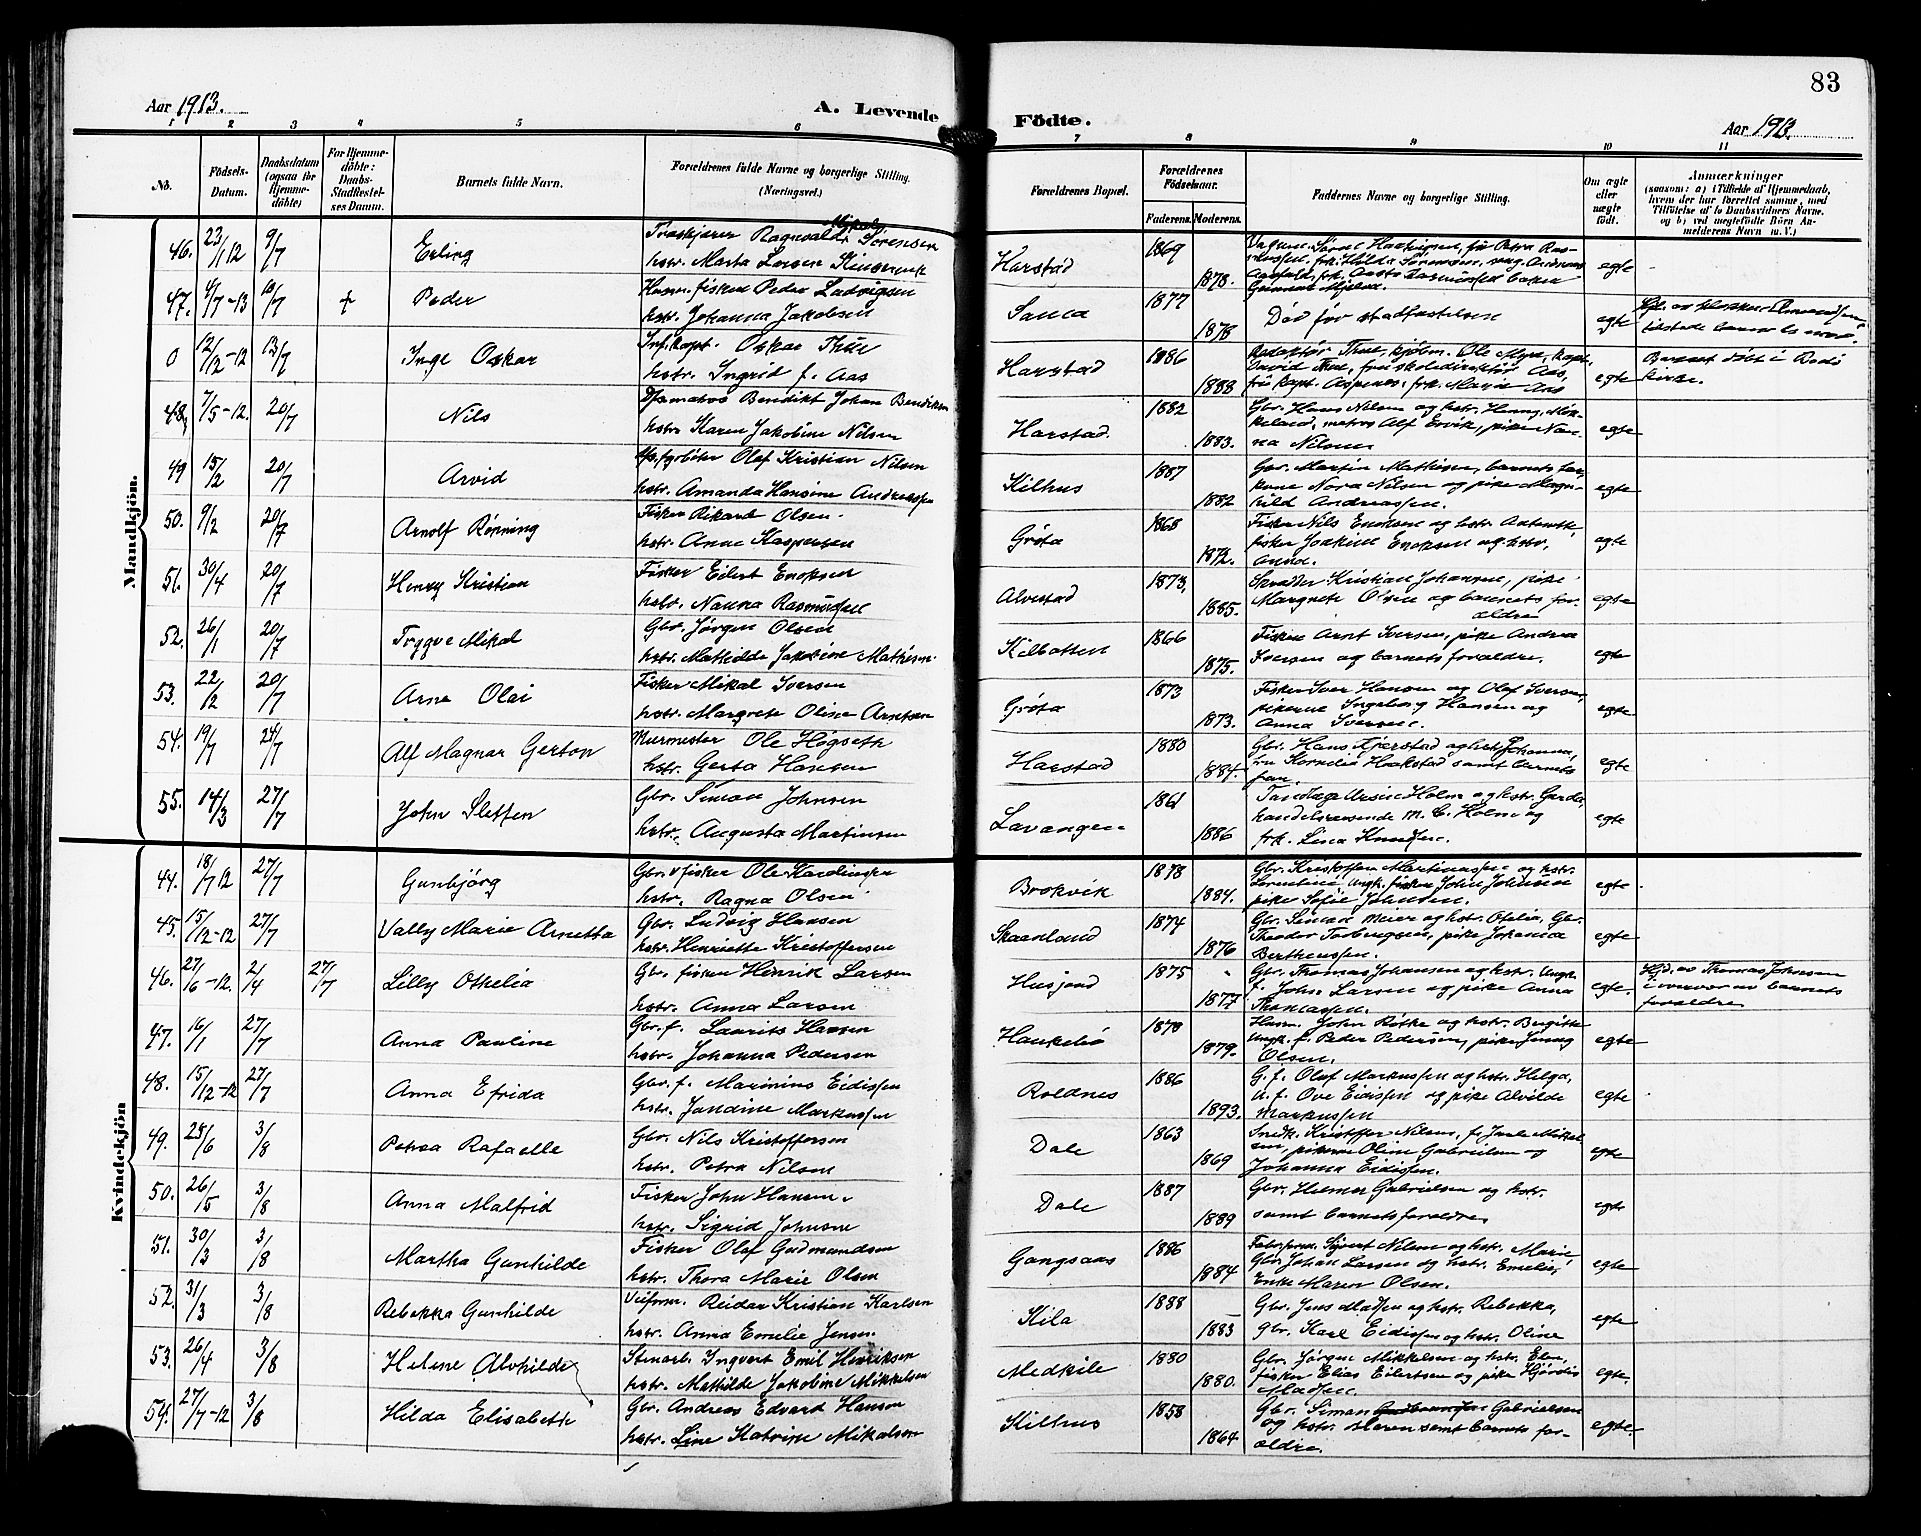 83
Aar 1913.
A. Levende Födte.
Aar 1913.
1 2 3 4 5 6 7 8 9 10 11
No.
Födsels-Datum.
Daabsdatum (ogsaa for Hjemme-döbte)
For Hjemme-döbte: Daabs-Stadfæstel-ses Datum.
Barnets fulde Navn.
Forældrenes fulde Navne og borgerlige Stilling. (Næringsvei.)
Forældrenes Bopæl.
Forældrenes Födselsaar.
Faderens. Moderens.
Faddernes Navne og borgerlige Stilling.
Om ægte eller uægte födt.
Anmærkninger
(saasom: a) i Tilfælde af Hjemmedaab,
hvem der har forrettet samme, med
Tilföielse af to Daabsvidners Navne,
og b) ved uægtefödte Börn An-
melderens Navn m. V.)
Mandkjön.
46. 23/1 12 9/7 Erling
Ragnvald Sørensen
hstr. Marta Larsen
Harstad 1869 1878. egte
47. 4/7-13 10/7 + Peder
fisker Peder Ludvigsen
hstr. Johanna Jakobsen
Sama 1877 1878 Død før stadfæstelsen egte
0 12/2-12 13/7 Inge Oskar
Inf.kapt. Oskar Thue
hstr. Ingrid f. Aas
Harstad 1886 1888 egte
Redaktør Thue, kjøbm. Ole Myre, kapt.
David Thue, fru skoledirektør Aas,
fru kapt. Aspenes, frk. Marie Aas
Barnet døbt i Bodø
kirke.
48 7/5-12. 20/7 Nils
Benedikt Johan Bendiksen
hstr. Karen Jakobine Nilsen
Harstad. 1882 1883. egte
Gbr. Hans Nilsen og hstr. Henny, Møk-
keland, matros Alf Ervik, pike Nan-
na Nilsen
49 15/2 20/7 Arvid
Olaf Kristian Nilsen
hstr. Amanda Hansine Andreassen
Kilhus 1887 1882 egte
Gbr. Martin Mathisen, barnets far,
kone Nora Nilsen og pike Mag-
hild Andreassen.
50. 9/2 20/7 Arnolf Rønning
Fisker Rikard Olsen.
hstr. Anne Kaspersen
Grøta 1868 1872. egte
Fisker Nils Enoksen og hstr. Antonette,
fisker Joakim Enoksen og hstr.
Anna.
51. 30/4 20/7 Henry Kristian
Fisker Eilert Enoksen
hstr. Nanna Rasmussen
Alvestad 1873, 1885. egte
Skrædder Kristian Johansen, pike
Margrete Olsen og barnets for-
ældre
52. 26/1 20/7 Tryggve Mikal
Gbr. Jørgen Olsen
hstr. Mathilde Jakobine Mathisen.
Kilbotten 1866 1875. egte
Fisker Arnt Iversen, pike Andrea
Iversen og barnets forældre.
53. 22/12 20/7 Arne Olai
Fisker Mikal Iversen
hstr. Margrete Oline Arntsen
Grøta 1873 1873. egte
Fisker Iver Hansen og Olaf Iversen,
pikerne Ingeborg Hansen og
Anna Iversen.
54. 19/7 24/7 Alf Magnar Gerton
Murmester Ole Høgseth
hstr. Gerta Hansen
Harstad 1880 1884. egte
Gbr. Hans Kjerstad og hstr. Johanna,
fru Kornelie Haakstad samt barnets
far.
55. 14/3 27/7 John Sletten
Gbr. Simon Johnsen
hstr. Augusta Martinsen
Lavangen 1861 1886 egte
Tandlæge Ursin Holm og hstr. Gerda,
handelsreisende M. C. Holm og
frk. Lina Knudsen.
Kvindekjön
44. 18/7 12 27/7 Gunbjørg
Gbr. & fisker Ole Hardinsen
hstr. Ragna Olsen
Brokvik 1878 1894. egte
Gbr. Kristoffer Martinussen og hstr.
Lorentine, Ungk. fisker John Johnsen
pike Sofie Johnsen.
45. 15/12-12 27/7 Vally Marie Arnetta
Gbr. Ludvig Hansen
hstr. Henriette Kristoffersen
Skaanland 1874 1876 egte
Gbr. Simon Meier og hstr. Ofelia, Gbr.
Theodor Torbergsen, pike Johanna
Berthinssen.
46. 27/6-12. 2/4 27/7 Lilly Othelia
Gbr. fisker Henrik Larsen
hstr. Anna Larsen
Husjord 1875 1877 egte.
Gbr. Thomas Johansen og hstr. Ungk.
f. Johs. Larsen og pike Anna
Thomassen.
Hjd. av Thomas Johnsen
i overvær av barnets
forældre
47. 16/1 27/7 Anna Pauline
Gbr. f. Laurits Hansen
hstr. Johanna Pedersen
Haukebø 1878 1879. egte
Husm. John Røtke og hstr. Birgitte
Ungk. f. Peder Pedersen, pike Jenny
Olsen.
48. 15/12-12 27/7 Anna Efrida
Gbr. f. Marinius Eidissen
hstr. Jandine Markussen
Roldnes 1886 1893. egte
G. f. Oluf Markussen og hstr. Helga,
u. f. Ove Eidissen og pike Alvilde
Markussen
49. 25/6 3/8 Petra Rafaelle
Gbr. Nils Kristoffersen
hstr. Petra Nilsen
Dale 1863 1869 egte
Snedk. Kristoffer Nilsen, f. Jarle Mikal
sen, pikerne Oline Gabrielsen og
Johanna Eidissen.
50. 26/5 3/8 Anna Malfrid
Fisker John Hansen.
hstr. Sigrid Johnsen
Dale 1887 1889 egte
Gbr. Helmer Gabrielsen og hstr.
samt barnets forældre
51. 30/3 3/8 Martha Gunhilde
Fisker Olaf Gudmundsen
hstr. Thora Marie Olsen
Gangsaas 1886 1884 egte
Sivert Nilsen og hstr. Marie,
Gbr. Johan Larsen og hstr. Emelie,
Enke Maren Olsen.
52. 31/3 3/8 Rebekka Gunhilde
Reidar Kristian Karlsen
hstr. Anna Emelie Jensen
Kila 1888 1883 egte
Gbr. Jens Madsen og hstr. Rebekka,
gbr. Karl Eidissen og hstr. Oline
53. 26/4 3/8 Helene Alvhilde
Stenarb. Ingvert Emil Henriksen
hstr. Mathilde Jakobine Mikkelsen
Medkile 1880 1880. egte.
Gbr. Jørgen Mikkelsen og hstr. Elen,
fisker Elias Eilertsen og pike Hjørdis
Madsen.
54. 27/7-12 3/8 Hilda Elisabeth
Gbr. Andreas Edvard Hanson
hstr. Line Katrine Mikalsen
Kilhus 1858 1864 egte.
Gbr. Simon Gabrielsen
og hstr. Maren samt barnets for-
ældre.